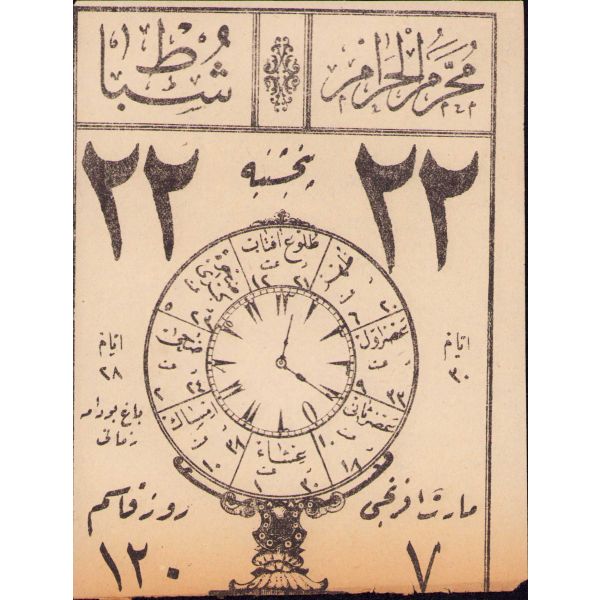 محرم الحرام
شباط
٢٢
پنجشنبه
٢٢
طلوع آفتاب
ظهر
عصر اول
عصر ثانی
عشاء
امساك
ضحی
ایام
٣٠
ایام
٢٨
باغ بودامه
زمانی
مارت افرنجی
٧
روز قاسم
١٢٠